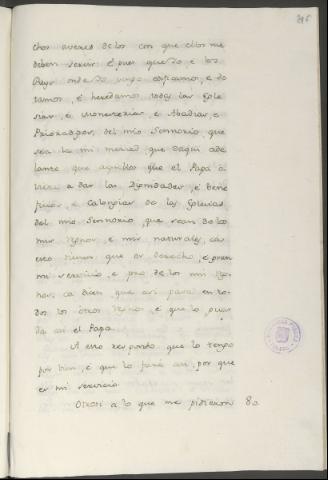 chos averes delos con que ellos me
deben servir. E pues que do e los
Reyes onde Yo vengo esquiamos, e do
tamos, é heredamos todas las Egle
sias, é Monesterios, e Abadias, e
Prioradgos, del mio Sennorio, que
sea la mi merced, que daqui ade
lante que aquellos que el Papa o
viere a dar las Dignidades, é bene
ficios, e Calongias de las Eglesias
del mio Sennorio, que sean dados
mis, e mis naturales, ca
esto tienen que es derecho, é pren
mi servicio, é pro de los mis
ca dicen que asi pasa en to
dos los otros Regnos, é que lo guar
da asi el Papa.
A esto respondo que lo tengo
por bien, é que lo faré asi, por que
es mi servicio.
Otrosi a lo que me pidieron 80